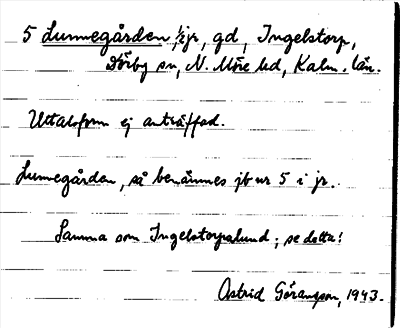 5 Lunnegården, 1/2 jr, gd, Ingelstorp,
Dörby sn, N. Möre hd, Kalm. län.
Uttalsform ej anträffad.
Lunnegården, så benämnes jb nr 5 i jr.
Samma som Ingelstorpalund; se detta!
Astrid Göransson, 1943.